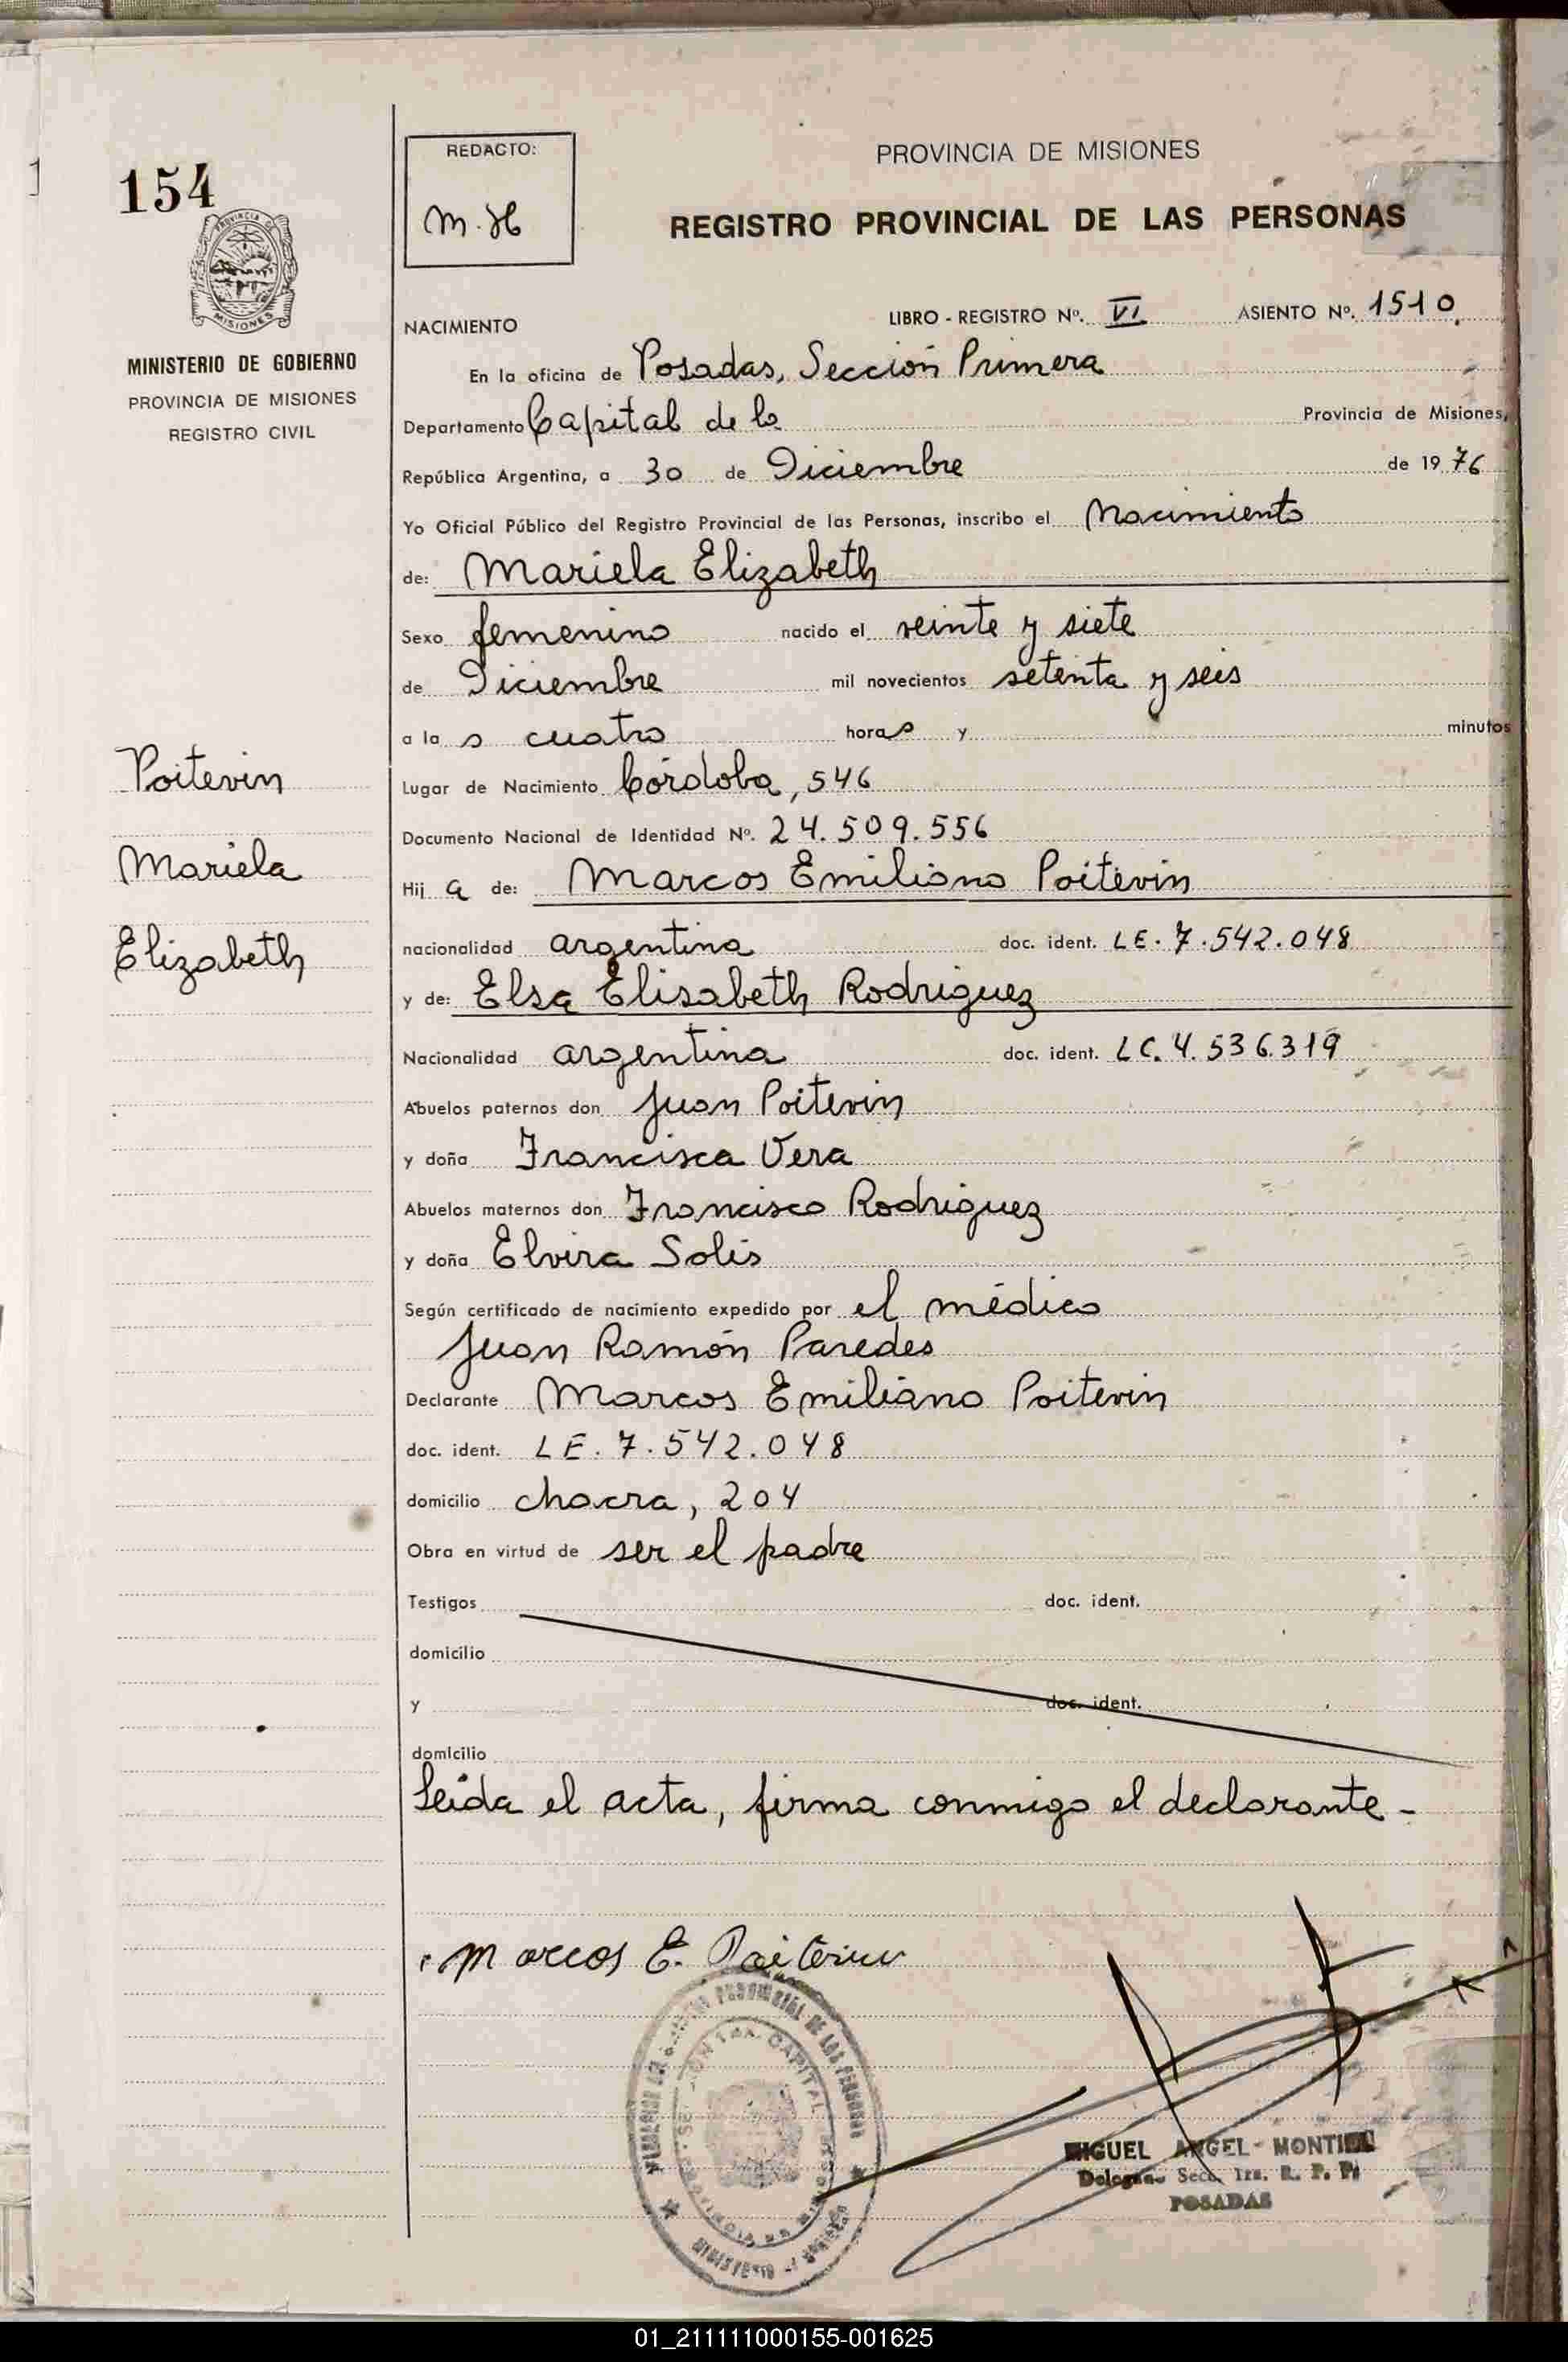 154
PROVINCIA DE
MISIONES
MINISTERIO DE GOBIERNO
PROVINCIA DE MISIONES
REGISTRO CIVIL
Poitevin
Mariela
Elizabeth
REDACTO:
M.H
PROVINCIA DE MISIONES
REGISTRO PROVINCIAL DE LAS PERSONAS
NACIMIENTO LIBRO - REGISTRO Nº. VI ASIENTO Nº. 1510.
En la oficina de Posadas, Sección Primera
Departamento Capital de la Provincia de Misiones,
República Argentina, a 30 de Diciembre de 1976
Yo Oficial Público del Registro Provincial de las Personas, inscribo el Nacimiento
de: Mariela Elizabeth
Sexo femenino nacido el veinte y siete
de Diciembre mil novecientos setenta y seis
a la s cuatro horas y minutos
Lugar de Nacimiento Córdoba, 546
Documento Nacional de Identidad Nº. 24.509.556
Hij a de: Marcos Emiliano Poitevin
nacionalidad argentina doc. ident. LE. 7.542.048
y de: Elsa Elisabeth Rodriguez
Nacionalidad argentina doc. ident. LC. 4.536.319
Abuelos paternos don Juan Poitevin
y doña Francisca Vera
Abuelos maternos don Francisco Rodriguez
y doña Elvira Solis
Según certificado de nacimiento expedido por el médico
Juan Ramón Paredes
Declarante Marcos Emiliano Poitevin
doc. ident. LE. 7.542.048
domicilio chacra, 204
Obra en virtud de ser el padre
Testigos doc. ident.
domicilio
y doc. ident.
domicilio
Leída el acta, firma conmigo el declarante -
Marcos E. Poitevin
PROVINCIAL DE LAS PERSONAS
CAPITAL
MINISTERIO
MIGUEL ANGEL MONTIEL
Delegado Secc. 1ra. R. P. P.
POSADAS
01_211111000155-001625